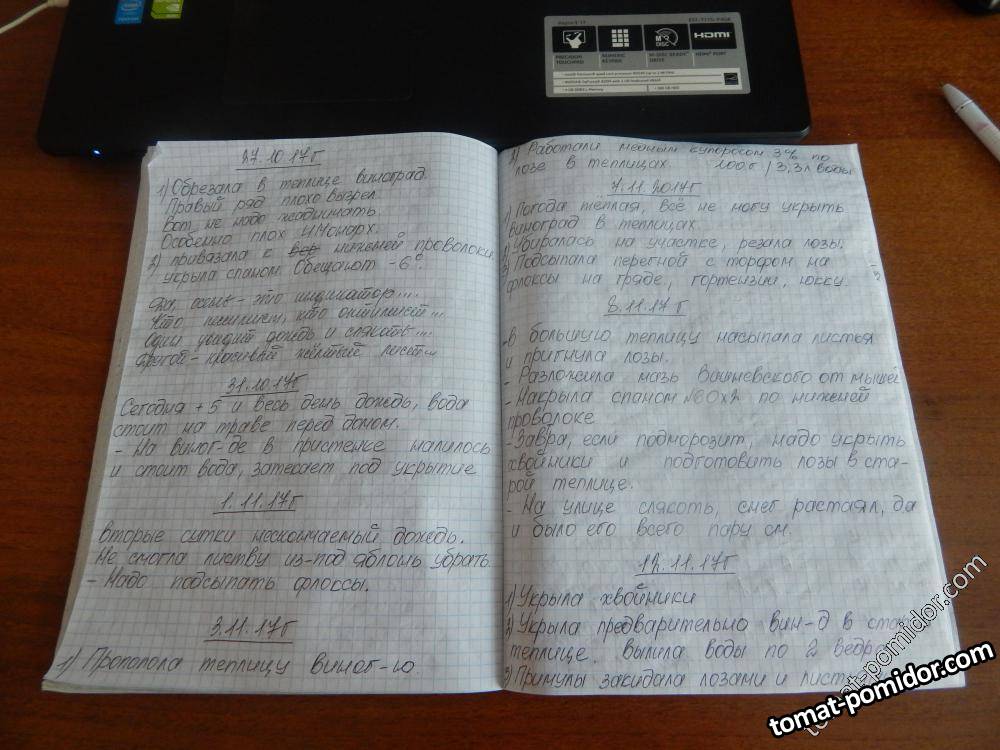 27.10.17г
1) Обрезала в теплице виноград.
Правый ряд плохо вызрел.
Вот, не надо жадничать.
Особенно плох 4 Монарх.
2) привязала к все нижней проволоки
укрыла спаном. Обещают -6°.
Да, осень - это индикатор...
Кто пессимист, кто оптимист...
Один увидит дождь и слякоть...
Другой - красивый жёлтый лист...
31.10.17г
Сегодня +5 и весь день дождь, вода
стоит на траве перед домом.
- На виног-де в пристенке налилось
и стоит вода, затекает под укрытие
1.11.17г
Вторые сутки нескончаемый дождь.
Не смогла листву из-под яблонь убрать.
- Надо подсыпать флоксы.
3.11.17г
1) Прополола теплицу виног-ю.
2) Работали медным купоросом 3% по
лозе в теплицах. 100г / 3,3л воды
7.11.2017г
1) Погода тёплая, всё не могу укрыть
виноград в теплицах.
2) Убиралась на участке, резала лозы.
3) Подсыпала перегной с торфом на
флоксы на гряде, гортензии, юкку.
8.11.17г
- В большую теплицу насыпала листья
и пригнула лозы.
- Разложила мазь Вишневского от мышей
- Накрыла спаном №60х2 по нижней
проволоке
- Завра, если подморозит, надо укрыть
хвойники и подготовить лозы в ста-
рой теплице.
- На улице слякоть, снег растаял, да
и было его всего пару см.
12.11.17г
1) Укрыла хвойники
2) Укрыла предварительно вин-д в
теплице. Вылила воды по 2 ведра
3) Примулы закидала лозами и
PRECISION TOUCHPAD
NUMERIC KEYPAD
M-DISC READY™ DRIVE
HDMI® PORT
HDMI
tomat-pomidor.com
tomat-pomidor.com